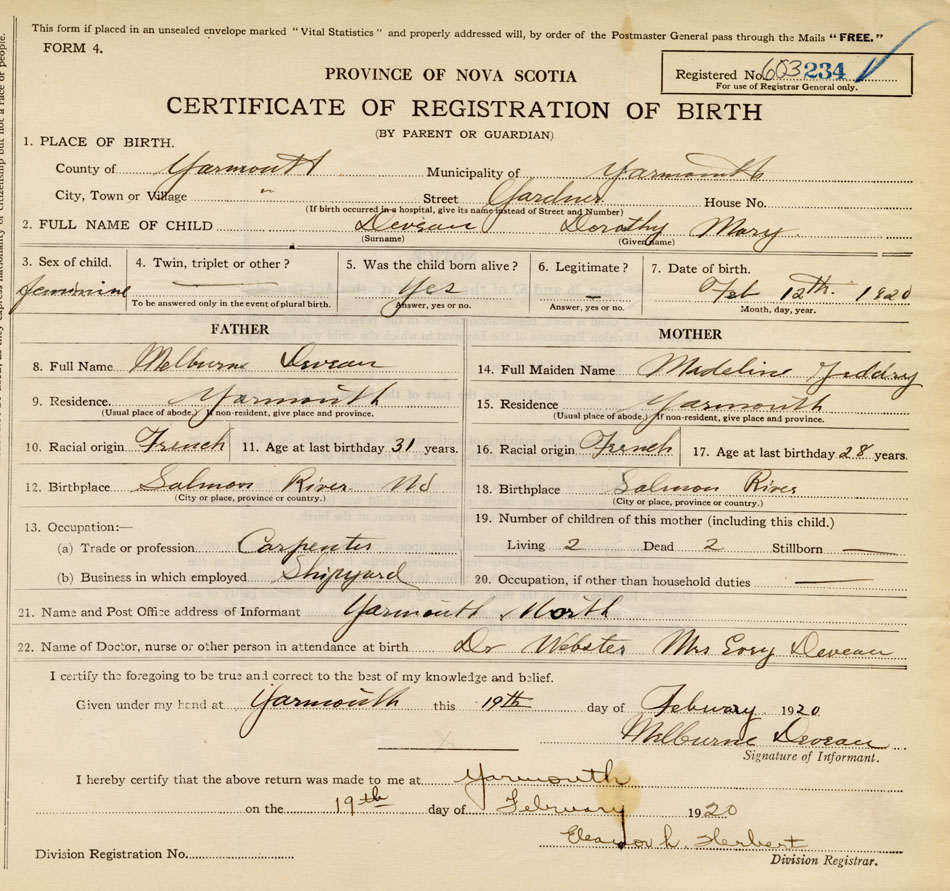 This form if placed in an unsealed envelope marked, "Vital Statistics" and properly addressed will, by order of the Postmaster General pass through the Mails "FREE."
FORM 4.
Registered No. 603234
For use of Registrar General only.
PROVINCE OF NOVA SCOTIA
CERTIFICATE OF REGISTRATION OF BIRTH
(BY PARENT OR GUARDIAN)
1. PLACE OF BIRTH.
County of Yarmouth Municipality of Yarmouth
City, Town or Village " Street Gardner House No.
(If birth occurred in a hospital, give its name instead of Street and Number)
2. FULL NAME OF CHILD Deveau Dorothy Mary
(Surname) (Given name)
3. Sex of child. 4. Twin, triplet or other? 5. Was the child born alive? 6. Legitimate? 7. Date of birth.
feminine — Yes — Feb 12th. 1920
To be answered only in the event of plural birth. Answer, yes or no. Answer, yes or no. Month, day, year.
FATHER MOTHER
8. Full Name Melburne Deveau 14. Full Maiden Name Madeline Jeddry
9. Residence. Yarmouth 15. Residence Yarmouth
(Usual place of abode.) If non-resident, give place and province. (Usual place of abode.) If non-resident, give place and province.
10. Racial origin French 11. Age at last birthday 31 years. 16. Racial origin French 17. Age at last birthday 28 years.
12. Birthplace Salmon River 18. Birthplace Salmon River
(City or place, province or country.) (City or place, province or country.)
13. Occupation:— 19. Number of children of this mother (including this child.)
(a) Trade or profession Carpenter Living 2 Dead 2 Stillborn —
(b) Business in which employed Shipyard 20. Occupation, if other than household duties —
21. Name and Post Office address of Informant Yarmouth North
22. Name of Doctor, nurse or other person in attendance at birth Dr Webster Mrs Deveau
I certify the foregoing to be true and correct to the best of my knowledge and belief.
Given under my hand at Yarmouth this 19th day of Febuary 1920
Melburne Deveau
Signature of Informant.
I hereby certify that the above return was made to me at Yarmouth
on the 19th day of February 1920
Eleanor L. Herbert
Division Registration No. Division Registrar.